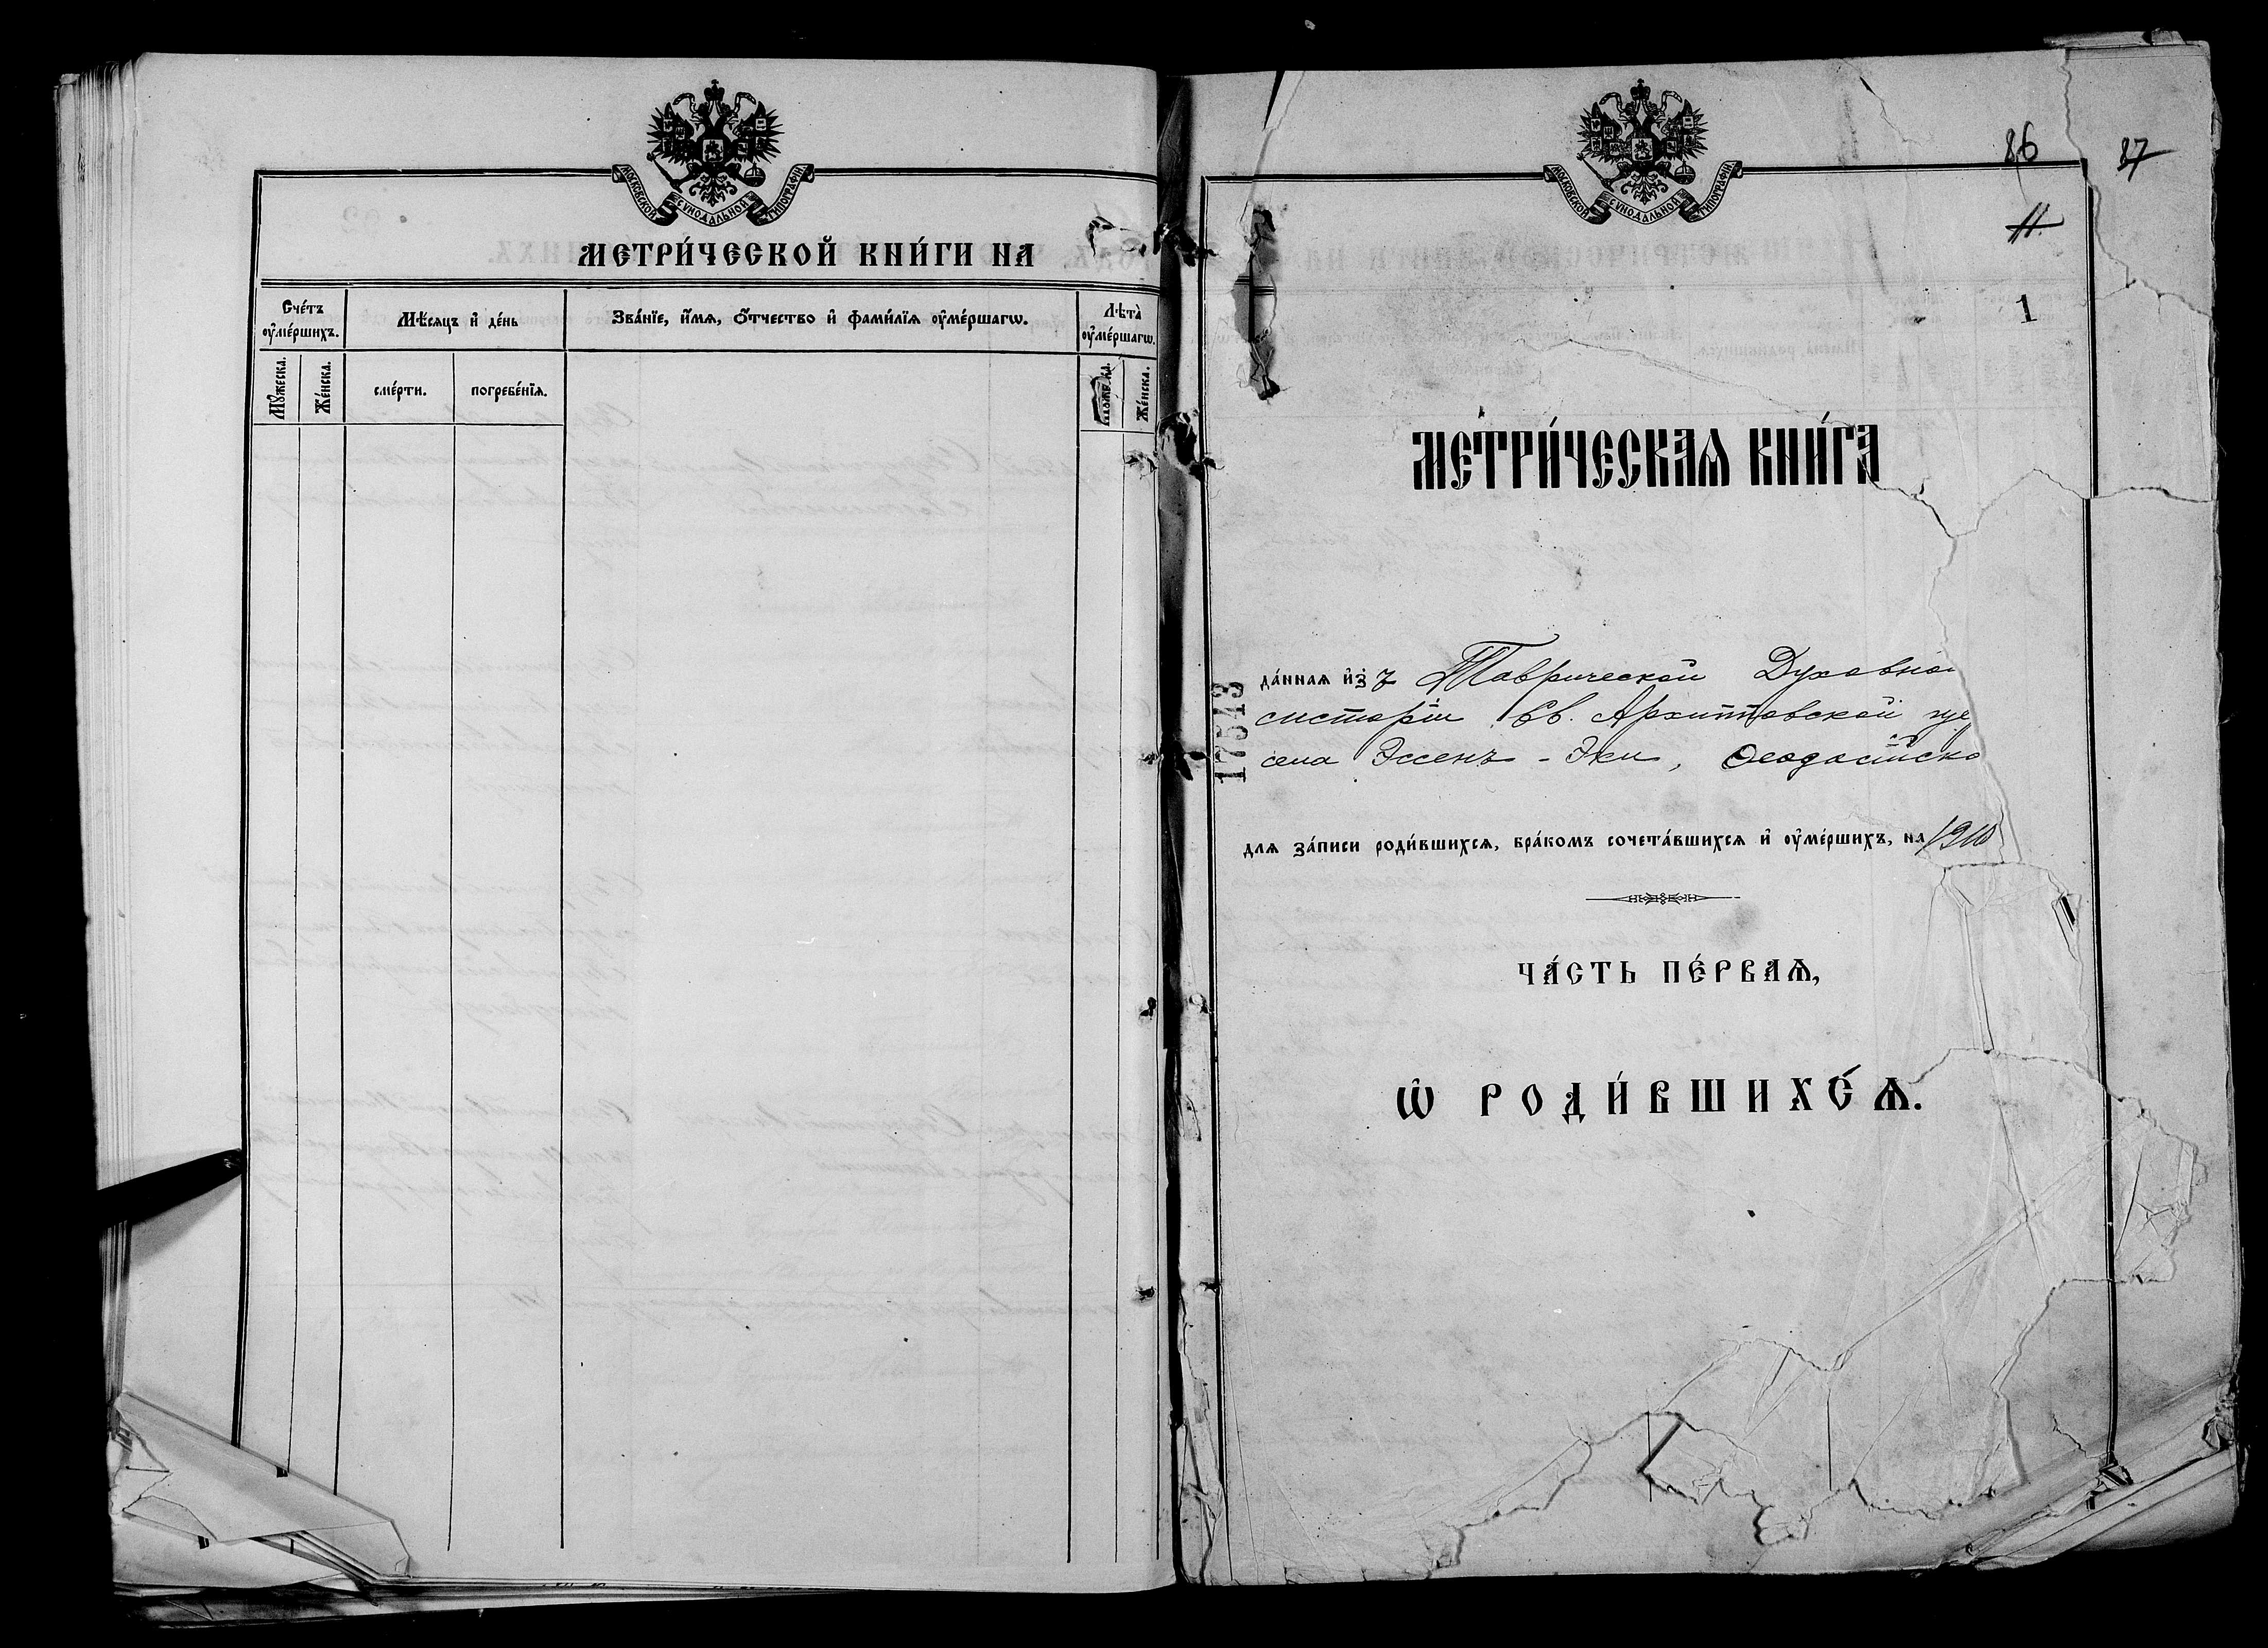 МОСКОВСКОЙ СѴНОДАЛЬНОЙ ТИПОГРАФІИ
МЕТРИ́ЧЕСКОЙ КНИ́ГИ НА
Сче́тъ ᲂу҆ме́ршихъ.
Мѣ́сяцъ и҆ де́нь
Зва́нїе, и҆́мѧ, ѻ҆́тчество и҆ фами́лїѧ ᲂу҆ме́ршагѡ.
Лѣ́та ᲂу҆ме́ршагѡ.
Мꙋ́жеска.
Же́нска.
сме́рти.
погребе́нїѧ.
Же́нска.
МОСКОВСКОЙ СѴНОДАЛЬНОЙ ТИПОГРАФІИ
86
87
11.
1
МЕТРИ́ЧЕСКАѦ КНИ́ГА
17543
да́ннаѧ и҆зъ Таврической Духовно
систоріи Св. Архипповской це
села Эссенъ-Эки, Ѳеодосійско
длѧ за́писи роди́вшихсѧ, бра́комъ сочета́вшихсѧ и҆ ᲂу҆ме́ршихъ, на 1910
ЧА́СТЬ ПЕ́РВАѦ,
Ѡ҆ РОДИ́ВШИХСѦ.